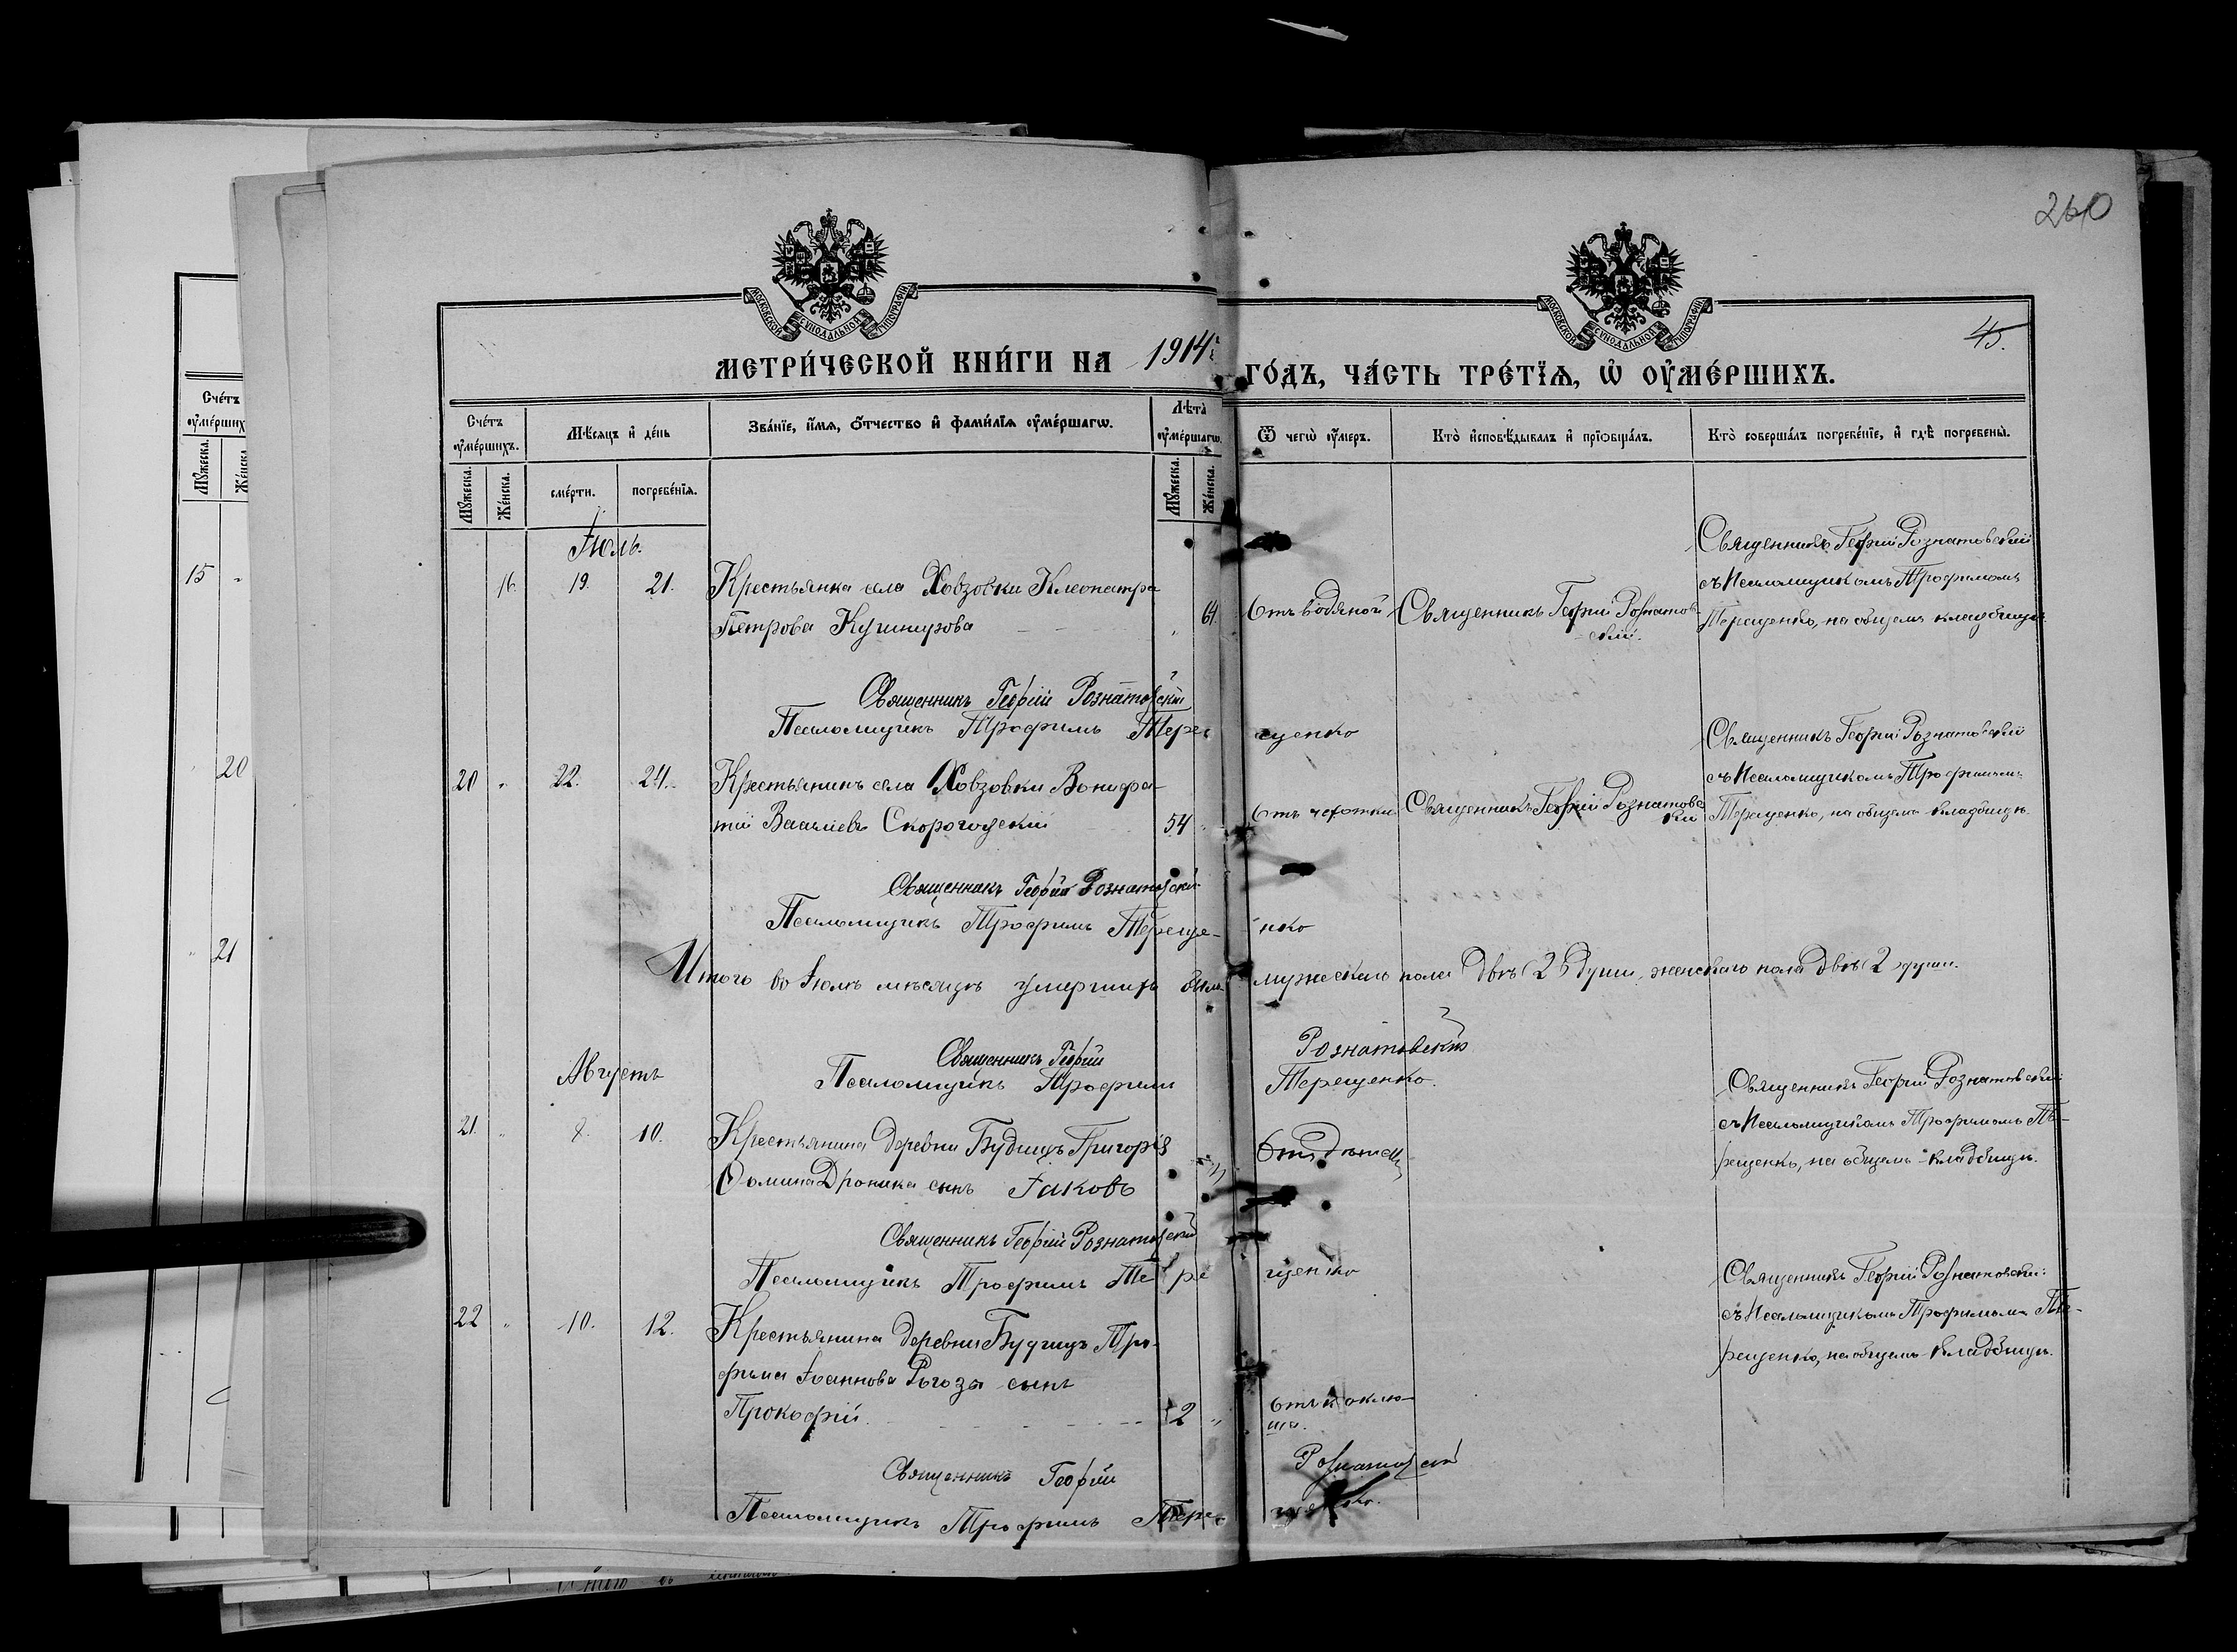 260
45.
МОСКОВСКОЙ СѴНОДАЛЬНОЙ ТИПОГРАФІИ
МОСКОВСКОЙ СѴНОДАЛЬНОЙ ТИПОГРАФІИ
МЕТРИ́ЧЕСКОЙ КНИ́ГИ НА 1914 ГО́ДЪ, ЧА́СТЬ ТРЕ́ТЇѦ, Ѡ҆ ОУ҆МЕ́РШИХЪ.
Сче́тъ оу҆ме́ршихъ.
Мѣ́сѧцъ и҆ де́нь
Зва́нїе, и҆́мѧ, ѻ҆́тчество и҆ фами́лїѧ оу҆ме́ршагѡ.
Лѣ́та оу҆ме́ршагѡ.
Ѿ чегѡ̀ оу҆́меръ.
Кто̀ и҆сповѣ́дывалъ и҆ прїѡбща́лъ.
Кто̀ соверша́лъ погребе́нїе, и҆ гдѣ̀ погребены̀.
Мꙋ́жеска.
Же́нска.
сме́рти.
погребе́нїѧ.
Мꙋ́жеска.
Же́нска.
Сче́тъ
Мꙋ́жеска.
15 "
20
21
Іюль.
16. 19. 21.
Крестьянка села Ховзовки Клеопатра
Петрова Кушнирова " 64.
Отъ водяной
Священникъ Георгій Рознатов-
скій.
Священникъ Георгій Рознатовскій
съ Псаломщикомъ Трофимомъ
Терещенко, на общемъ кладбищѣ.
Священникъ Георгій Рознатовскій
Псаломщикъ Трофимъ Терещенко
20 " 22. 24.
Крестьянинъ села Ховзовки Вонифа-
тій Васильевъ Скорогодскій 54 "
Отъ чехотки
Священникъ Георгій Рознатовс
кій
Священникъ Георгій Рознатовскій
съ Псаломщикомъ Трофимомъ
Терещенко, на общемъ кладбищѣ.
Священникъ Георгій Рознатовскій
Псаломщикъ Трофимъ Терещенко
Итого во Іюлѣ мѣсяцѣ умершихъ было мужескаго пола двѣ (2) души, женскаго пола двѣ (2) души.
Священникъ Георгій Рознатовскій
Псаломщикъ Трофимъ Терещенко.
Августъ
21. " 8. 10.
Крестьянина деревни Будищъ Григорія
Ѳомина Дроника сынъ Іаковъ
Священникъ Георгій Рознатовскій
съ Псаломщикомъ Трофимомъ Те-
рещенко, на общемъ кладбищѣ.
Священникъ Георгій Рознатовскій
Псаломщикъ Трофимъ Терещенко
22 " 10. 12.
Крестьянина деревни Будищъ Тро-
фима Іоаннова Рогоза сынъ
Прокофій. 2 "
отъ коклю-
ша.
Священникъ Георгій Рознатовскій
съ Псаломщикомъ Трофимомъ Те-
рещенко, на общемъ кладбищѣ.
Священникъ Георгій Рознатовскій
Псаломщикъ Трофимъ Терещенко.